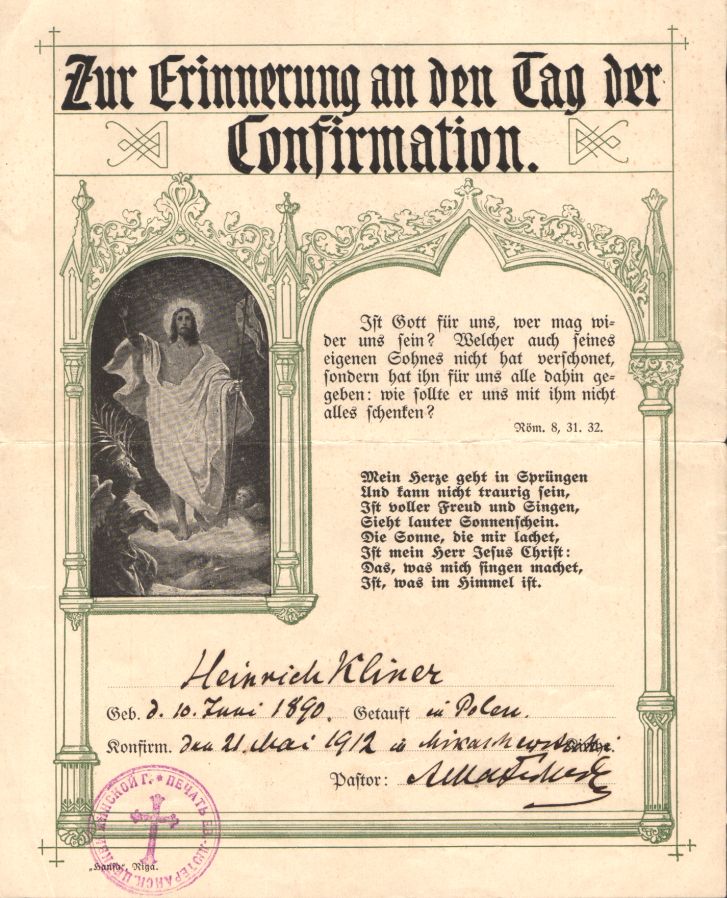 Zur Erinnerung an den Tag der
Confirmation.
Ist Gott für uns, wer mag wi-
der uns sein? Welcher auch seines
eigenen Sohnes nicht hat verschonet,
sondern hat ihn für uns alle dahin ge-
geben: wie sollte er uns mit ihm nicht
alles schenken?
Röm. 8, 31. 32.
Mein Herze geht in Sprüngen
Und kann nicht traurig sein,
Ist voller Freud und Singen,
Sieht lauter Sonnenschein.
Die Sonne, die mir lachet,
Ist mein Herr Jesus Christ:
Das, was mich singen machet,
Ist, was im Himmel ist.
Heinrich Kliner
Geb. d. 10. Juni 1890. Getauft in Polen.
Konfirm. den 21. Mai 1912 in
Pastor:
ПЕЧАТЬ ЕВ.-ЛЮТЕРАНСК.
МИНСКОЙ Г.
„Hansa“, Riga.